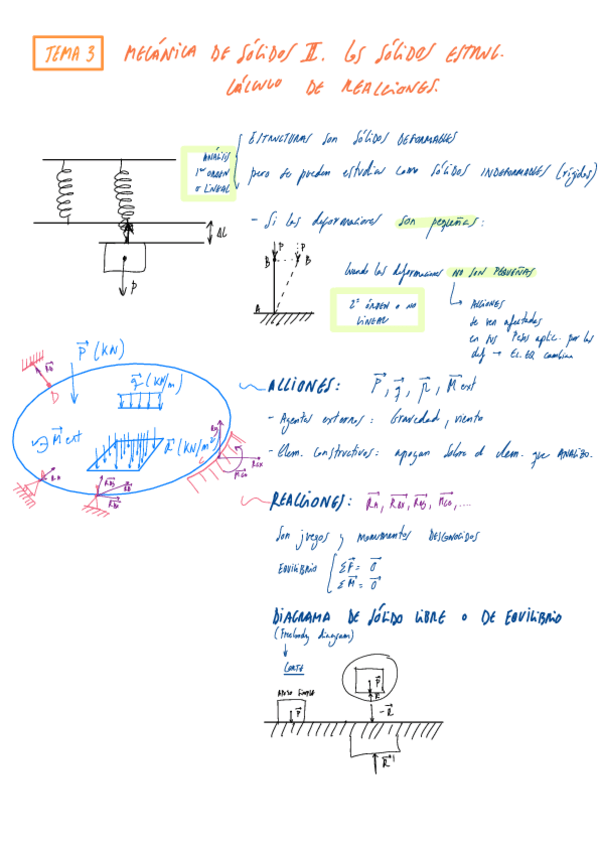 TEMA 3 MECÁNICA DE SÓLIDOS II. LOS SÓLIDOS ESTRUC.
CÁLCULO DE REACCIONES.
ANÁLISIS
1er ORDEN
o LINEAL
ESTRUCTURAS son sólidos DEFORMABLES
pero se pueden estudiar como sólidos INDEFORMABLES (rígidos)
ΔL
P
- Si las deformaciones son pequeñas:
P P
B B
A
Cuando las deformaciones NO SON PEQUEÑAS
2º ORDEN o NO
LINEAL
ACCIONES
se ven afectadas
en sus Ptos aplic. por las
def → Ec. EQ cambian
P (KN)
q (KN/m)
M ext
(KN/m²)
D
RD
RA
A
RBy
RB
RBx
C
RCx
MCO
ACCIONES: P, q, M ext
- Agentes externos: Gravedad, viento
- Elem. Constructivos: apoyan sobre el elem. que ANALIZO.
REACCIONES: RA, RBx, RBy, MCO, ....
Son fuerzas y momentos DESCONOCIDOS
EQUILIBRIO ΣF = 0
ΣM = 0
DIAGRAMA DE SÓLIDO LIBRE o DE EQUILIBRIO
(Freebody diagram)
CORTE
APOYO SIMPLE
P
P
R
-R
R'